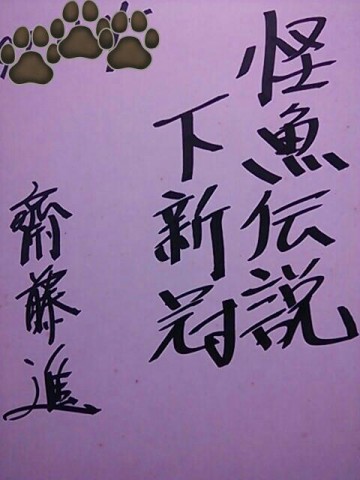 怪魚伝説
下新冠
齋藤進